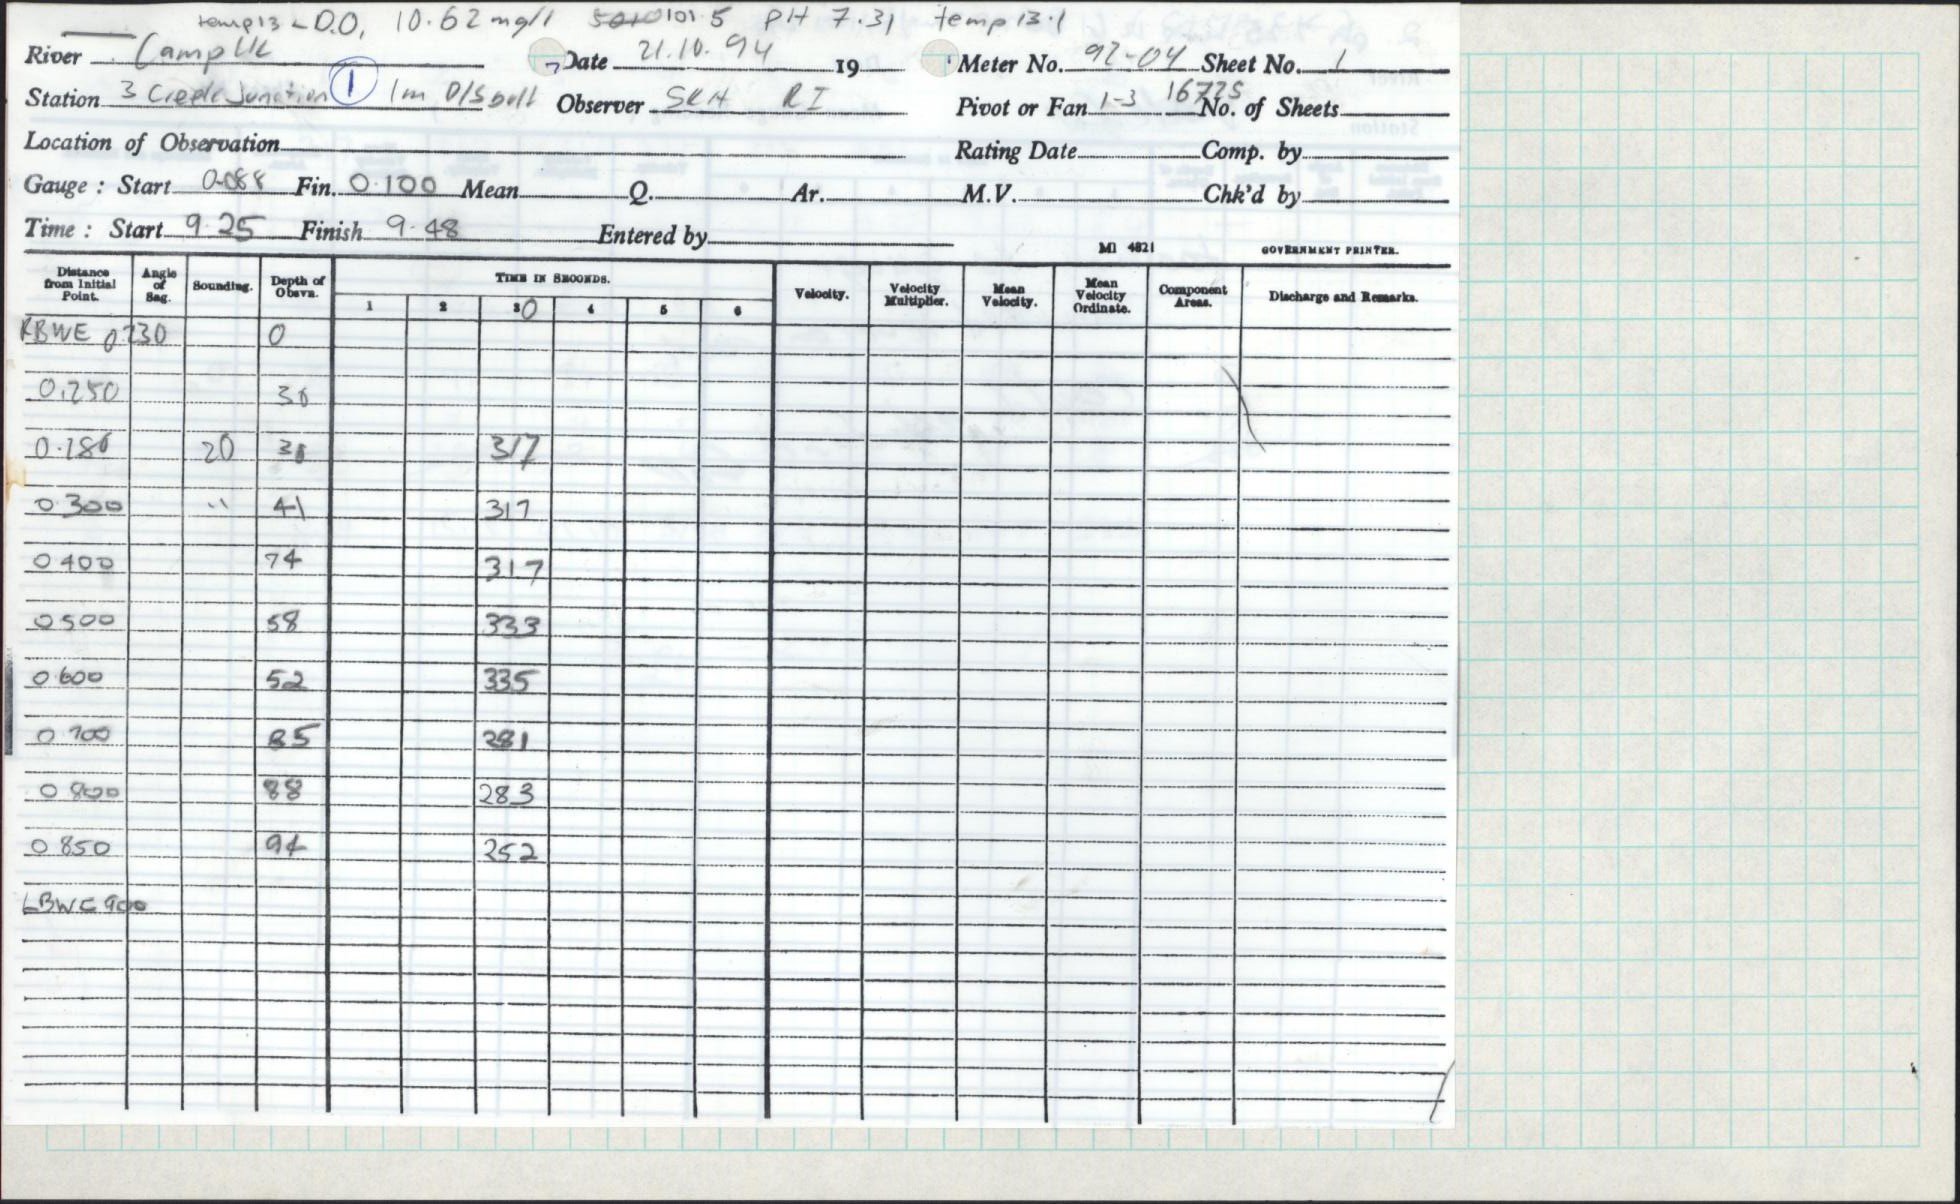 temp 13 - D.O, 10.62 mg/l 101.5 pH 7.31 temp 13.1
River Camp Ck Date 21.10.94 19 Meter No. 92-04 Sheet No. 1
Station 3 Creek Junction 1 1m D/S bolt Observer SKH RI Pivot or Fan 1-3 16725 No. of Sheets
Location of Observation Rating Date Comp. by
Gauge : Start 0.088 Fin. 0.100 Mean Q. Ar. M.V. Chk'd by
Time : Start 9.25 Finish 9.48 Entered by MI 4821 GOVERNMENT PRINTER.
Distance from Initial Point. Angle of Sag. Sounding. Depth of Obsvn. TIME IN SECONDS. Velocity. Velocity Multiplier. Mean Velocity. Mean Velocity Ordinate. Component Areas. Discharge and Remarks.
1 2 30 4 5 6
RBWE 0.230 0
0.250 30
0.280 20 317
0.300 " 41 317
0 400 74 317
0 500 58 333
0.600 52 335
0 700 85 281
0 800 88 283
0 850 94 252
LBWE 900